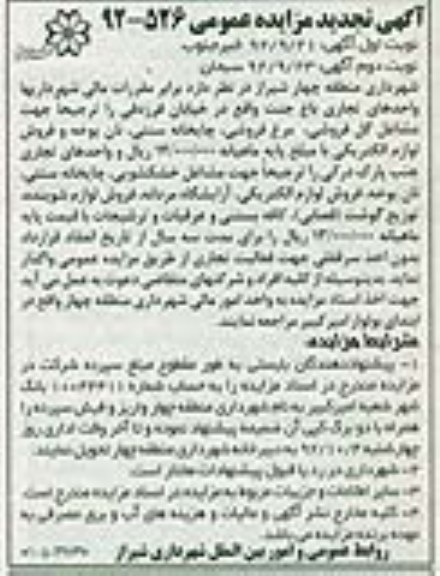 آگهی تجدید مزایده عمومی ۵۲۶-۹۲
نوبت اول آگهی: ۹۲/۹/۲۱ خبرجنوب
نوبت دوم آگهی: ۹۲/۹/۲۳ سبحان
شهرداری منطقه چهار شیراز در نظر دارد برابر مقررات مالی شهرداریها
واحدهای تجاری باغ جنت واقع در خیابان را ترجیحا جهت
مشاغل گل فروشی، مرغ فروشی، چایخانه سنتی، نان یوخه و فروش
لوازم الکتریکی با مبلغ پایه ماهیانه ریال و واحدهای تجاری
جنب پارک را ترجیحا جهت مشاغل خشکشویی، چایخانه سنتی،
نان یوخه، فروش لوازم الکتریکی، آرایشگاه مردانه، فروش لوازم
توزیع گوشت کافه بستنی و عرقیات و ترشیجات با قیمت پایه
ماهیانه ریال را برای مدت سه سال از تاریخ انعقاد قرارداد
بدون اخذ سرقفلی جهت فعالیت تجاری از طریق مزایده عمومی واگذار
نماید. بدینوسیله از کلیه افراد و شرکتهای متقاضی دعوت به عمل می آید
جهت اخذ اسناد مزایده به واحد امور مالی شهرداری منطقه چهار واقع در
ابتدای بولوار امیرکبیر مراجعه نمایند.
شرایط مزایده:
۱- پیشنهاددهندگان بایستی به طور مقطوع مبلغ سپرده شرکت در
مزایده مندرج در اسناد مزایده را به حساب شماره بانک
شهر شعبه امیرکبیر به نام شهرداری منطقه چهار واریز و فیش سپرده را
همراه با دو برگ کپی آن ضمیمه پیشنهاد نموده و تا آخر وقت اداری روز
چهارشنبه ۹۲/۱۰/۴ به دبیرخانه شهرداری منطقه چهار تحویل نمایند.
۲- شهرداری در رد یا قبول پیشنهادات مختار است.
۳- سایر اطلاعات و جزییات مربوط به مزایده در اسناد مزایده مندرج است.
۴- کلیه مخارج نشر آگهی و مالیات و هزینه های آب و برق مصرفی به
عهده برنده مزایده می باشد.
روابط عمومی و امور بین الملل شهرداری شیراز